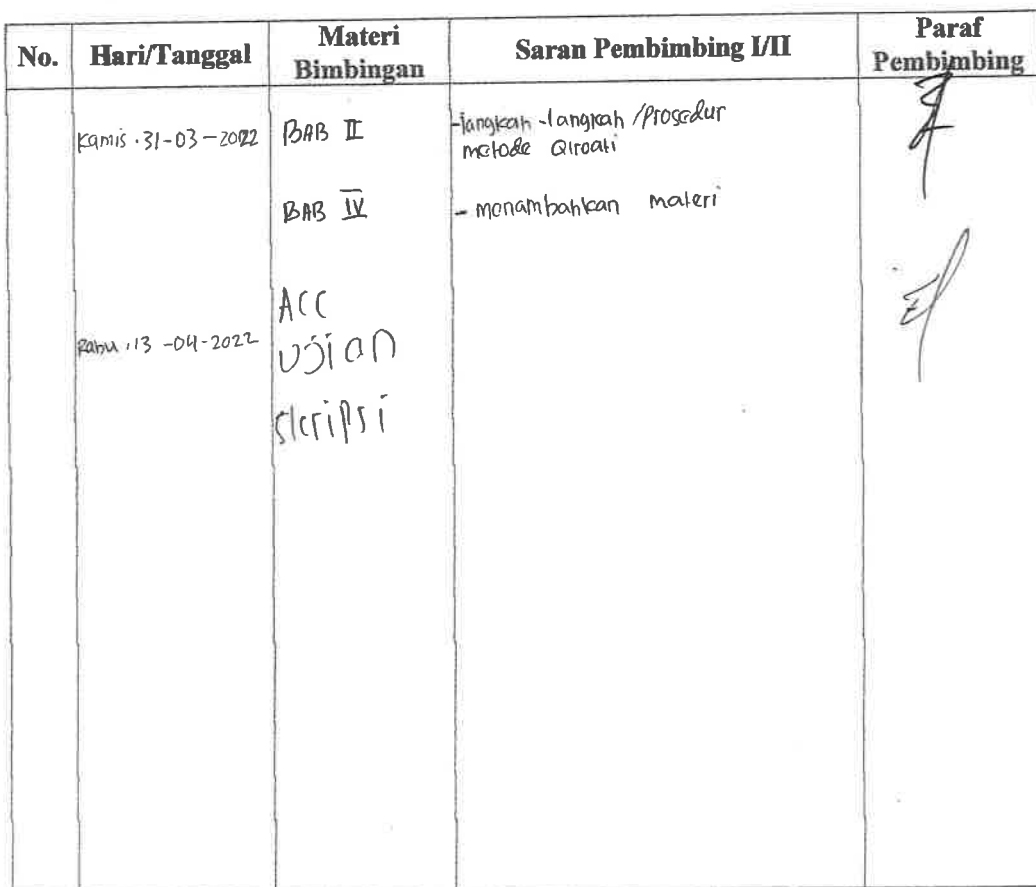 No. Hari/Tanggal Materi Bimbingan Saran Pembimbing I/II Paraf Pembimbing
Kamis . 31-03-2022 BAB II -langkah -langkah /Prosedur
metode Qiroati
BAB IV - menambahkan materi
Rabu . 13 -04-2022 ACC
Ujian
Skripsi